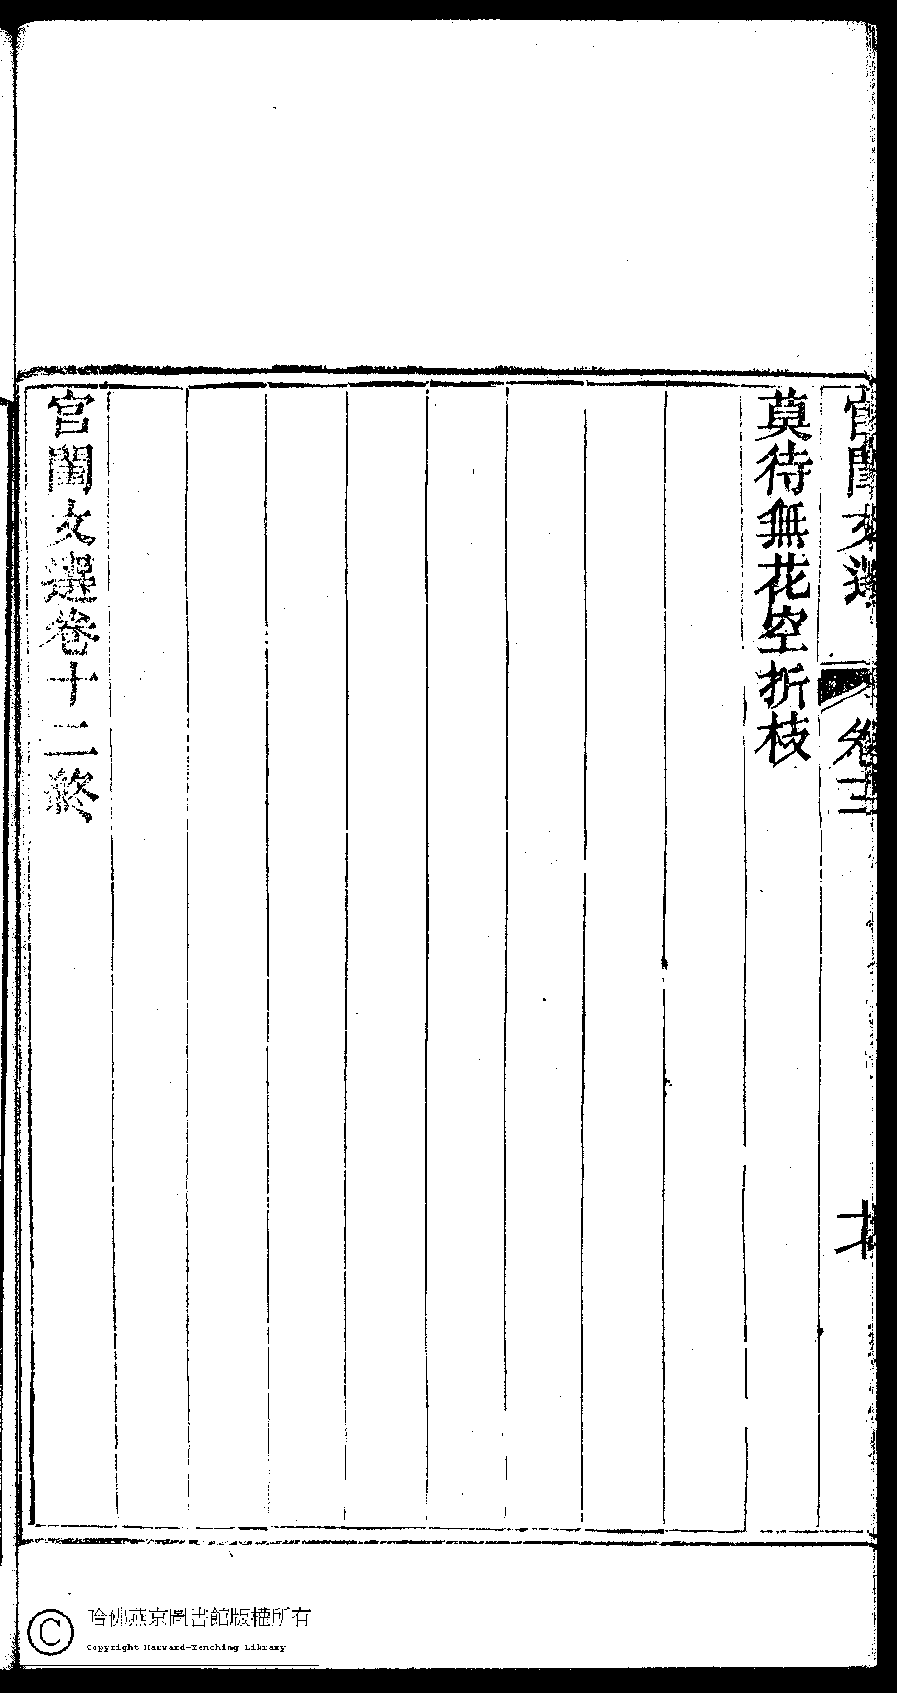 宮閨文選
卷十二
莫待無花空折枝
宮閨文選卷十二終
哈佛燕京圖書館版權所有
Copyright Harvard-Yenching Library